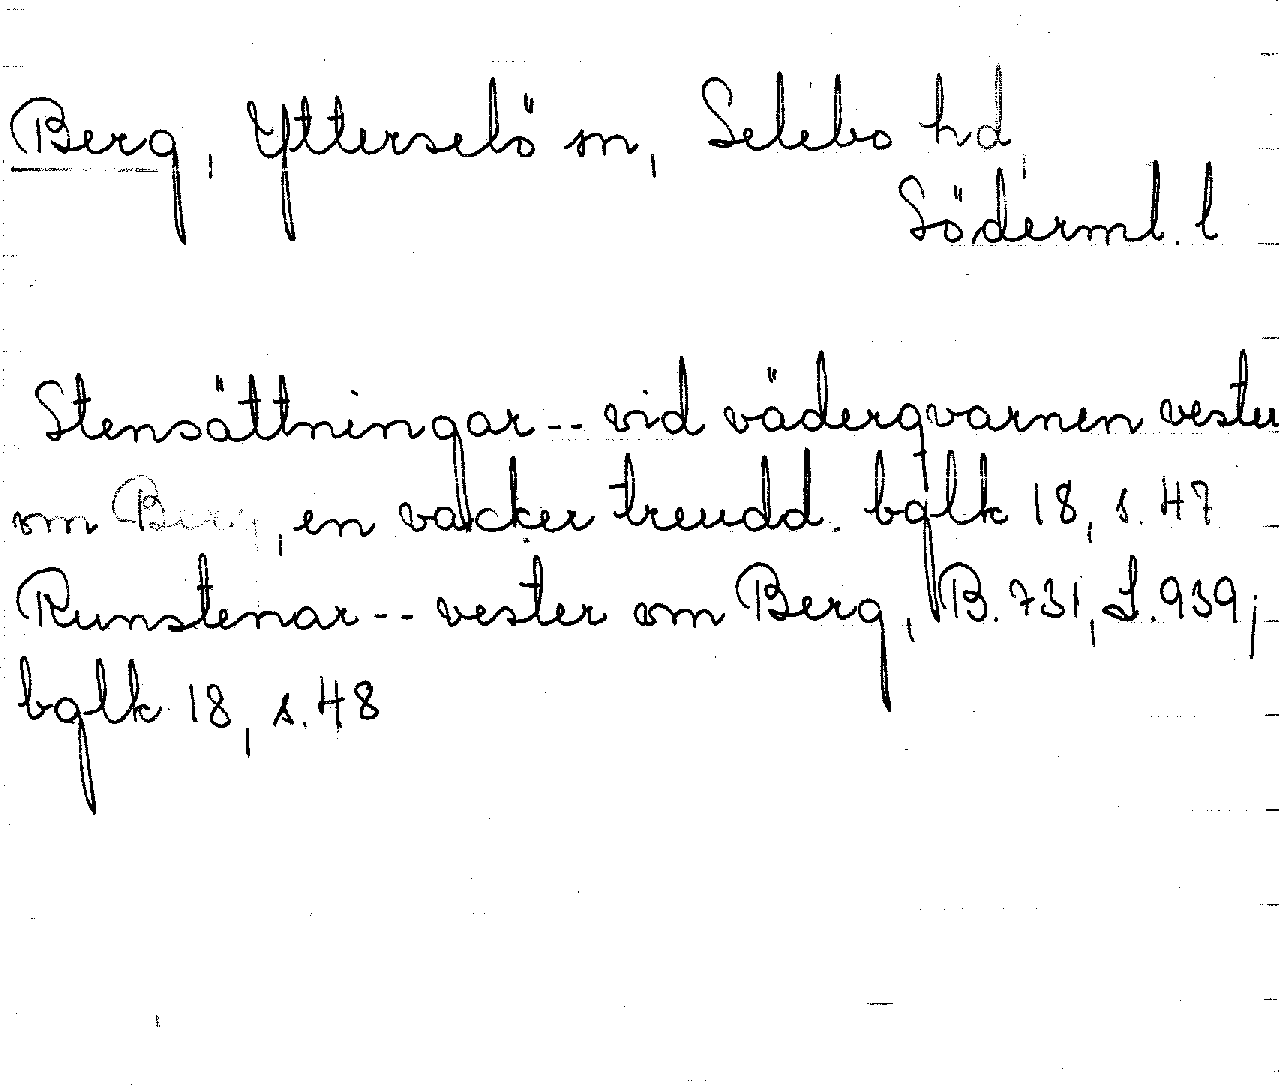 Berg, Ytterselö sn, Selebo hd,
Söderml. l
Stensättningar -- vid vädergvarnen vester
om Berg, en vacker treudd. bglk 18, s. 47
Runstenar -- vester om Berg, B. 731, L. 939;
bglk 18, s. 48